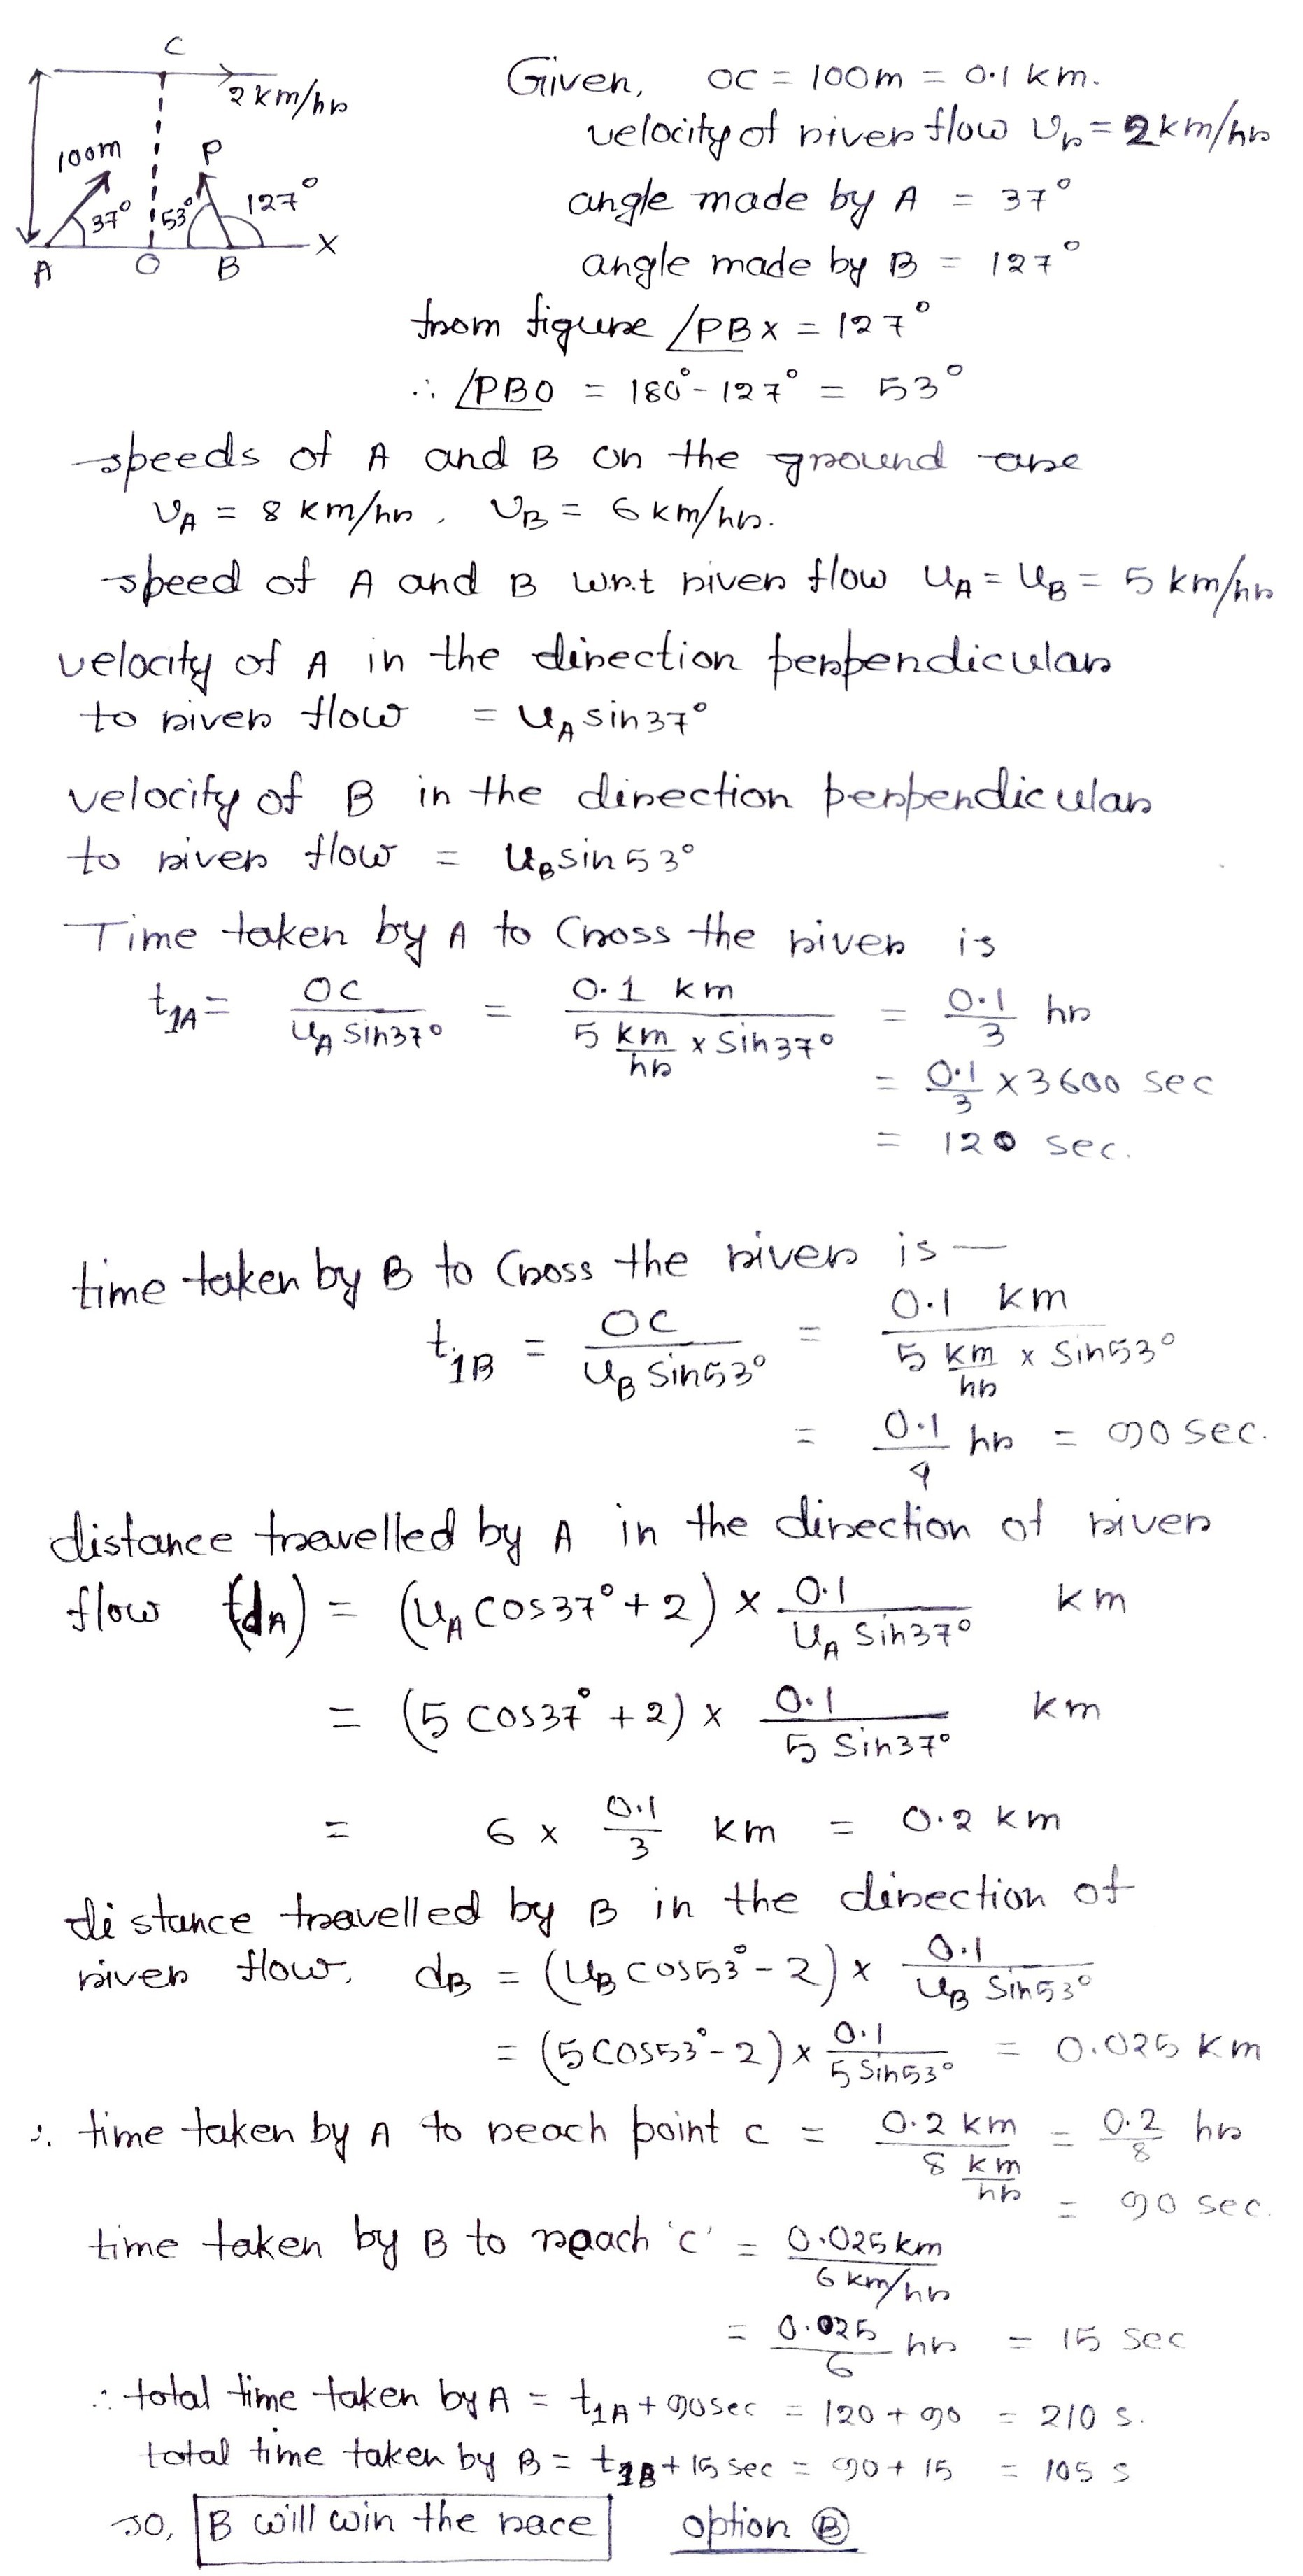 C
2 km/hr
100m
P
37°
53°
127°
A
O
B
X
Given, OC = 100m = 0.1 km.
velocity of river flow υr = 2 km/hr
angle made by A = 37°
angle made by B = 127°
from figure ∠PBX = 127°
∴ ∠PBO = 180° - 127° = 53°
speeds of A and B on the ground are
υA = 8 km/hr, υB = 6 km/hr.
speed of A and B w.r.t river flow uA = uB = 5 km/hr
velocity of A in the direction perpendicular
to river flow = uA sin37°
velocity of B in the direction perpendicular
to river flow = uB sin53°
Time taken by A to Cross the river is
t1A = OC / uA sin37° = 0.1 km / 5 km/hr x sin37° = 0.1/3 hr
= 0.1/3 x 3600 sec
= 120 sec.
time taken by B to Cross the river is —
t1B = OC / uB sin53° = 0.1 km / 5 km/hr x sin53°
= 0.1/4 hr = 90 sec.
distance travelled by A in the direction of river
flow (dA) = (uA cos37° + 2) x 0.1 / uA sin37° km
= (5 cos37° + 2) x 0.1 / 5 sin37° km
= 6 x 0.1/3 km = 0.2 km
distance travelled by B in the direction of
river flow, dB = (uB cos53° - 2) x 0.1 / uB sin53°
= (5 cos53° - 2) x 0.1 / 5 sin53° = 0.025 km
∴ time taken by A to reach point C = 0.2 km / 8 km/hr = 0.2/8 hr
= 90 sec.
time taken by B to reach 'C' = 0.025 km / 6 km/hr
= 0.025/6 hr = 15 sec
∴ total time taken by A = t1A + 90 sec = 120 + 90 = 210 s.
total time taken by B = t1B + 15 sec = 90 + 15 = 105 s
so, B will win the race option B